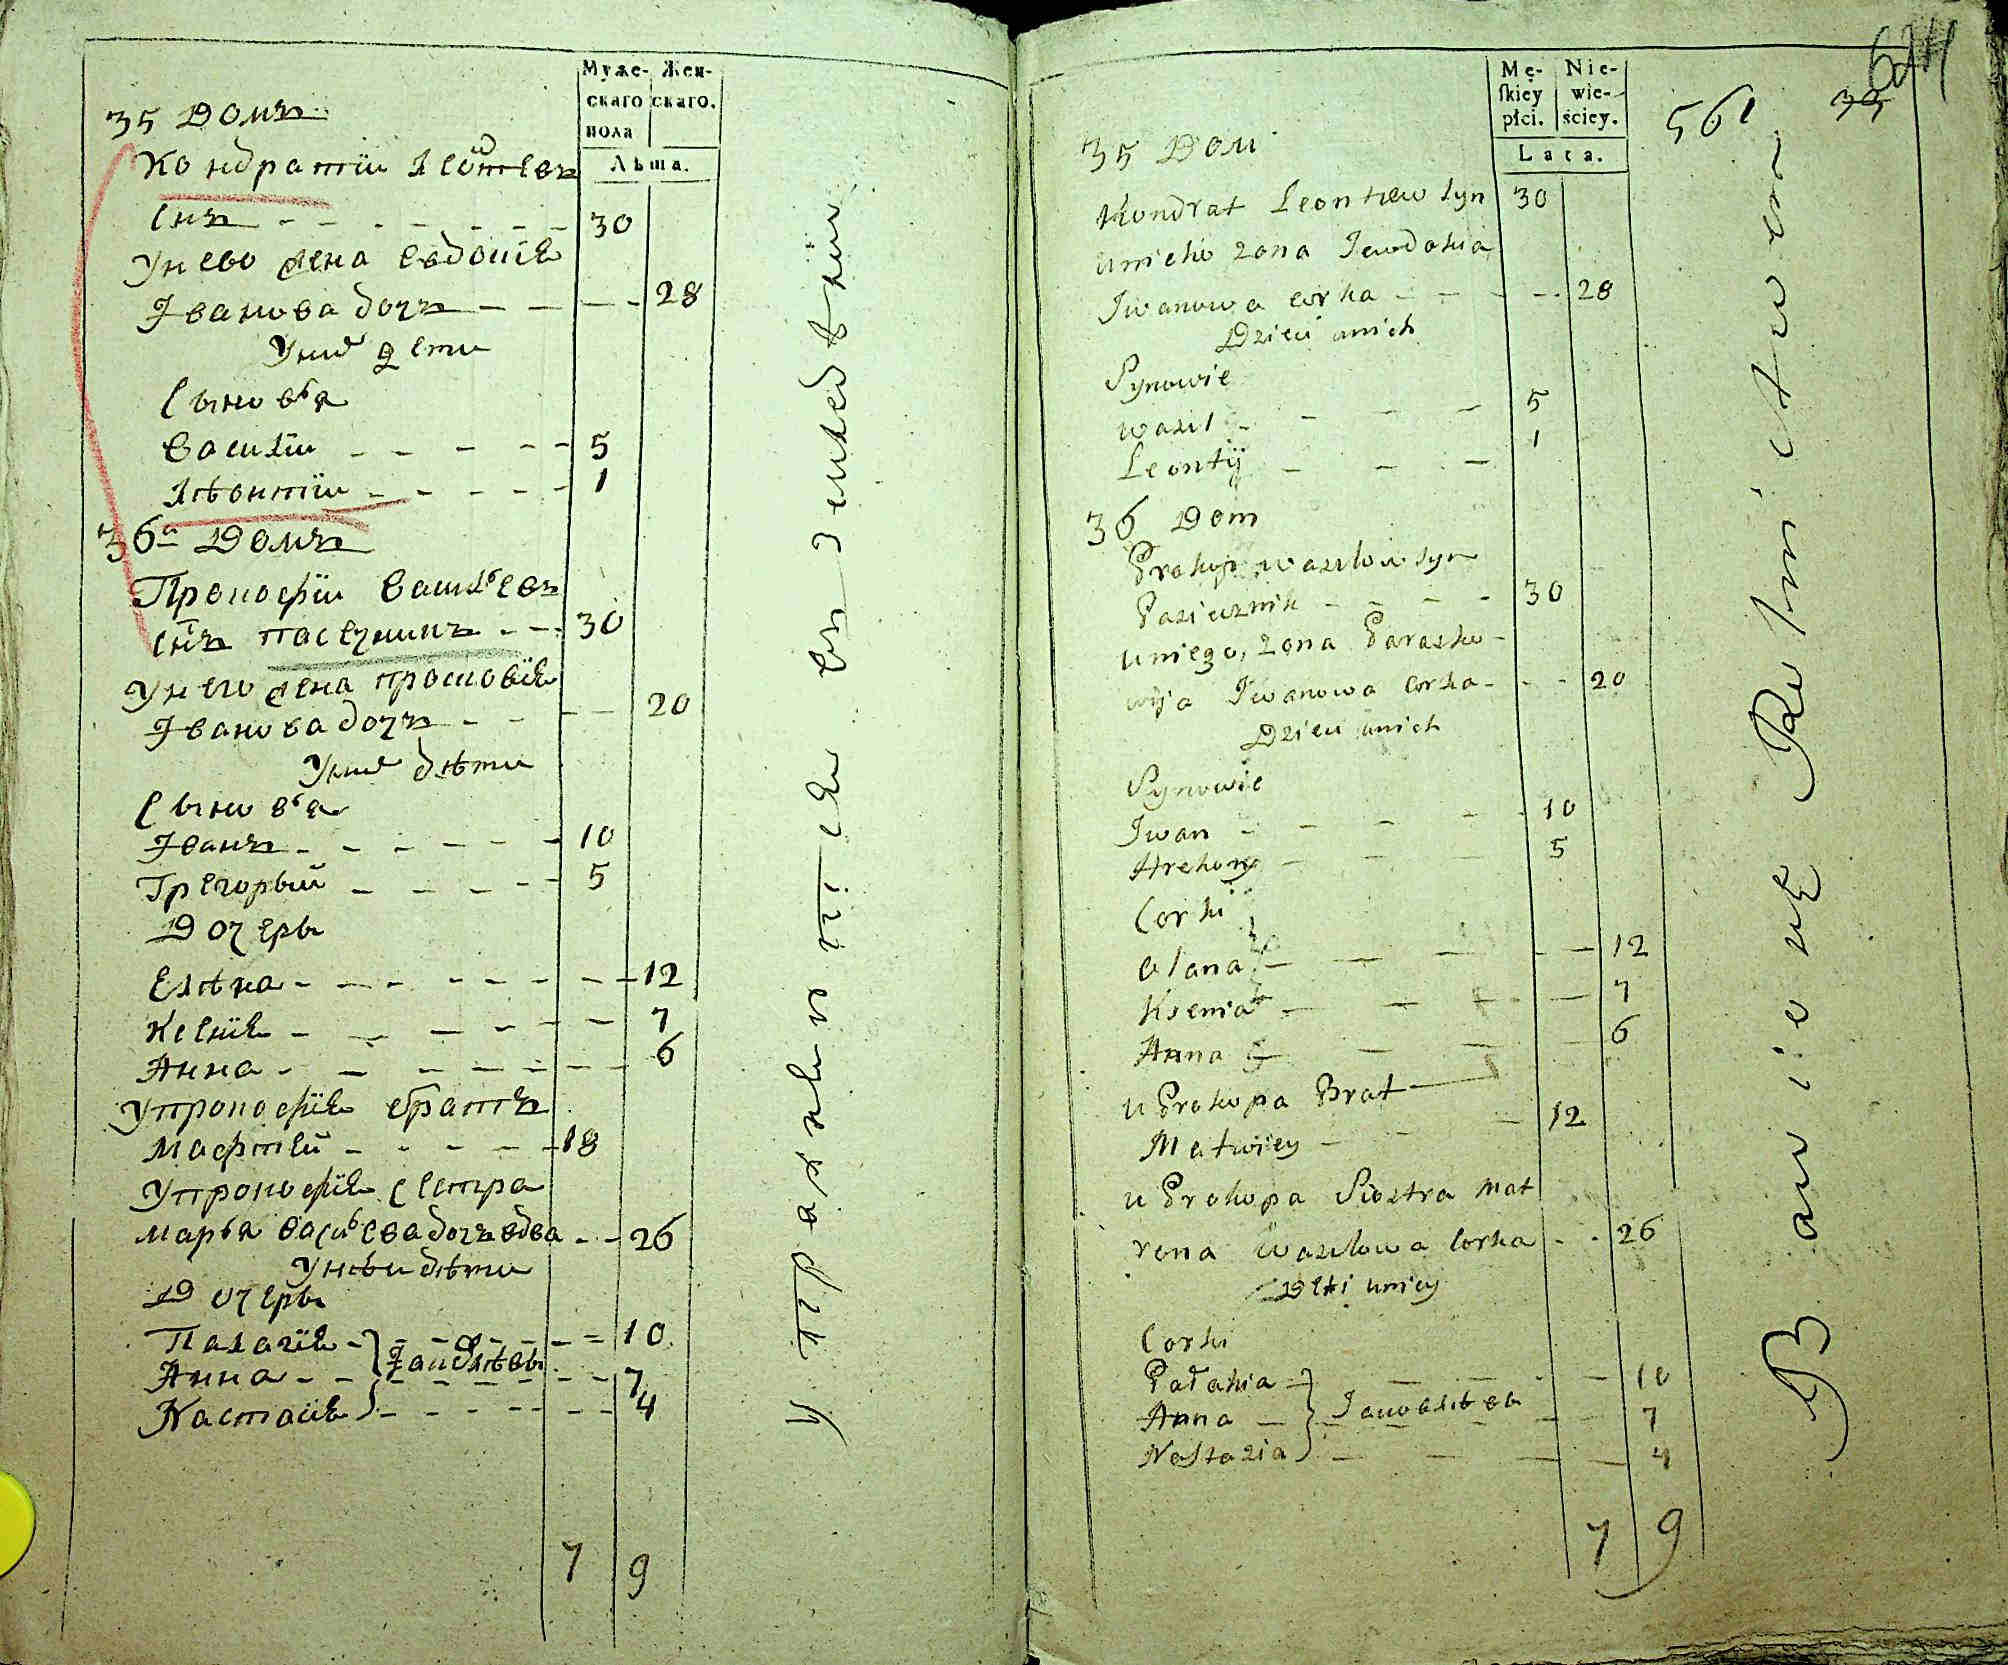 Муже- Жен-
скаго скаго.
пола
Лѣта.
35 Домъ
Кондратïи Леѡтʼевъ
снъ - - - - - - 30
У нево жена евдокïя
Iванова дочъ - - - - 28
У них дети
Сыновья
Василïи - - - - - 5
Лѣонтïи - - - - - 1
36й Домъ
Прокофïи Васильевъ
снъ пасечникъ - - 30
У него жена прасковïя
Iванова дочъ - - - - 20
У них дѣти
Сыновья
Iванъ - - - - - - 10
Грегорьïи - - - - - 5
Дочеры
Елѣна - - - - - - - - 12
Ксенïя - - - - - - - 7
Анна - - - - - - - - 6
У прокофïя братъ
Мафтей - - - - - 18
У прокофïя сестра
марья васильева дочь вдва - - 26
У нѣи дѣти
Дочеры
Палагïя - - - - - - - 10
Анна - - - - - - - - 7
Настасïя - - - - - - - 4
7 9
упражняются въ земледѣлïи
Mę- Nie-
ſkiey wie-
płci. ściey.
Lata.
561 39 624
35 Dom
Kondrat Leontiew syn 30
u nieho zona Jewdokia
Iwanowa corka - - - - 28
Dzieci u nich
Synowie
Wasil - - - - 5
Leontij - - - 1
36 Dom
Prokop Wasilow syn
Pasiecznik - - - - 30
u niego zona Parasko-
wija Iwanowa corka - - - 20
Dzieci u nich
Synowie
Iwan - - - - - 10
Hrehory - - - 5
Corki
Olana - - - - - - 12
Ksenia - - - - - 7
Anna - - - - - 6
u Prokopa Brat
Matwiey - - - 12
u Prokopa Siostra Mat
rona Wasilowa Corka - - 26
Dzieci u niey
Corki
Pałahia - - - - - 10
Anna - - - - - 7
Nastazia - - - - 4
7 9
Bawione Rolnictwem